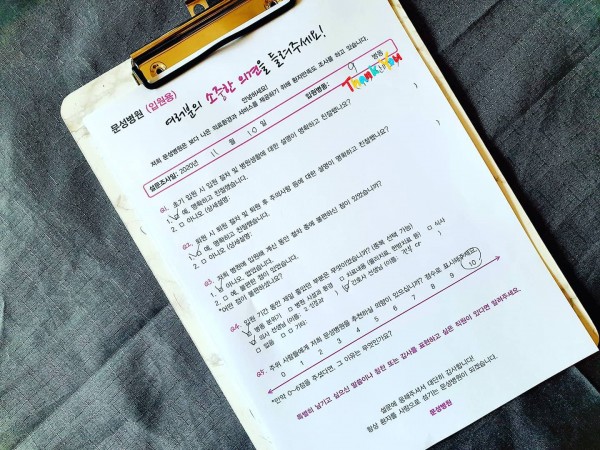 문성병원 (입원용)
여러분의 소중한 의견을 들려주세요!
안녕하세요?
저희 문성병원은 보다 나은 의료환경과 서비스를 제공하기 위해 환자만족도 조사를 하고 있습니다.
설문조사일: 2020년 11 월 10 일 입원병동: 9 병동
THANK YOU
Q1. 초기 입원 시 입원 절차 및 병원생활에 대한 설명이 명확하고 친절했나요?
1. 예, 명확하고 친절했습니다.
2. 아니오 (상세설명:
Q2. 퇴원 시 퇴원 절차 및 퇴원 후 주의사항 등에 대한 설명이 명확하고 친절했나요?
1. 예, 명확하고 친절했습니다.
2. 아니오 (상세설명: )
Q3. 저희 병원에 입원해 계신 동안 절차 중에 불편하신 점이 있었습니까?
1. 아니오, 없었습니다.
2. 예, 불편한 점이 있었습니다.
*어떤 점이 불편하셨나요?
Q4. 입원 기간 동안 제일 좋았던 부분은 무엇이었습니까? (중복 선택 가능)
병동 분위기 병원 시설과 환경 치료내용 (물리치료, 한방치료 등) 식사
의사 선생님 (이름: ) 간호사 선생님 (이름: )
없음 기타:
Q5. 주위 사람들에게 저희 문성병원을 추천하실 의향이 있으십니까? 점수로 표시해주세요.
0 1 2 3 4 5 6 7 8 9 10
*만약 0~6점을 주셨다면, 그 이유는 무엇인가요?
특별히 남기고 싶으신 말씀이나 칭찬 또는 감사를 표현하고 싶은 직원이 있다면 알려주세요.
설문에 응해주셔서 대단히 감사합니다!
항상 환자를 사랑으로 섬기는 문성병원이 되겠습니다.
문성병원